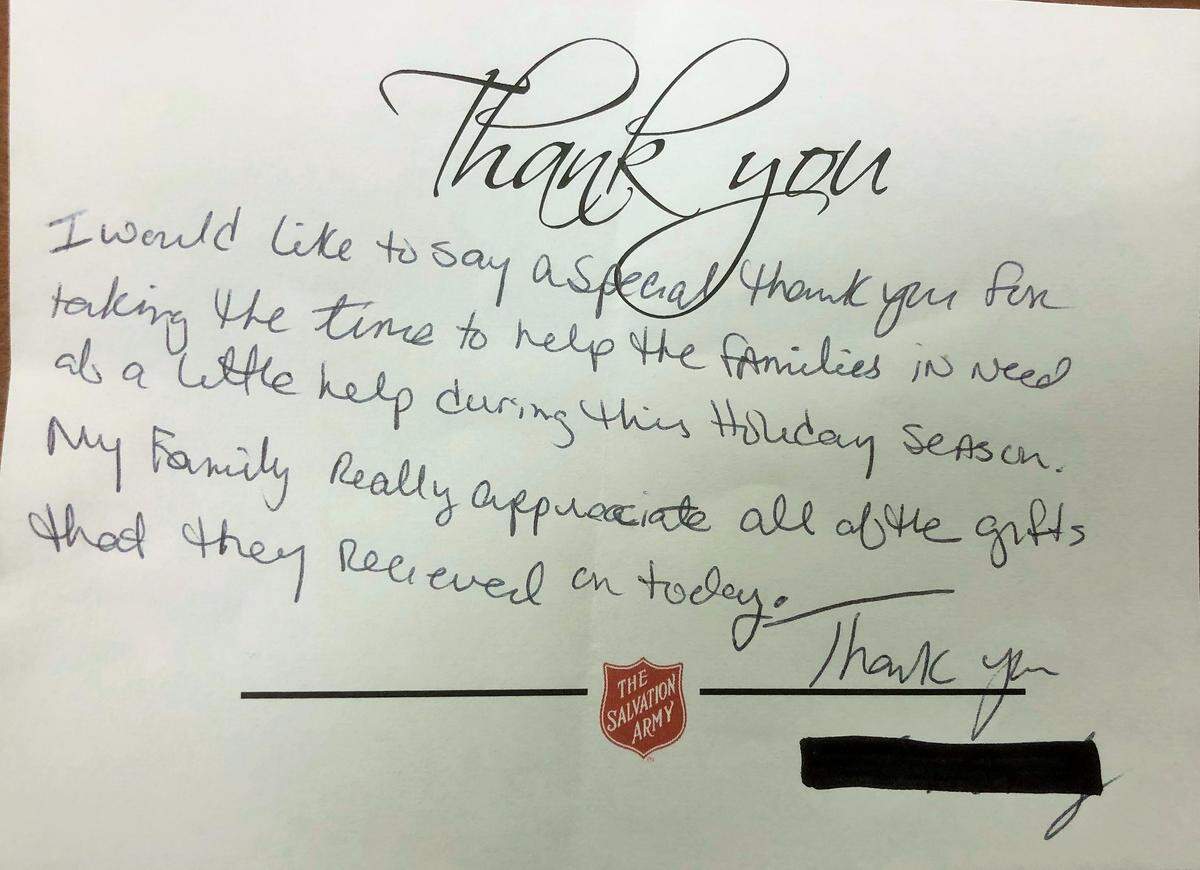 Thank you
I would like to say a special thank you for
taking the time to help the families in need
as a little help during this Holiday Season.
My Family Really appreaciate all of the gifts
that they Recieved on today.
Thank you
THE
SALVATION
ARMY